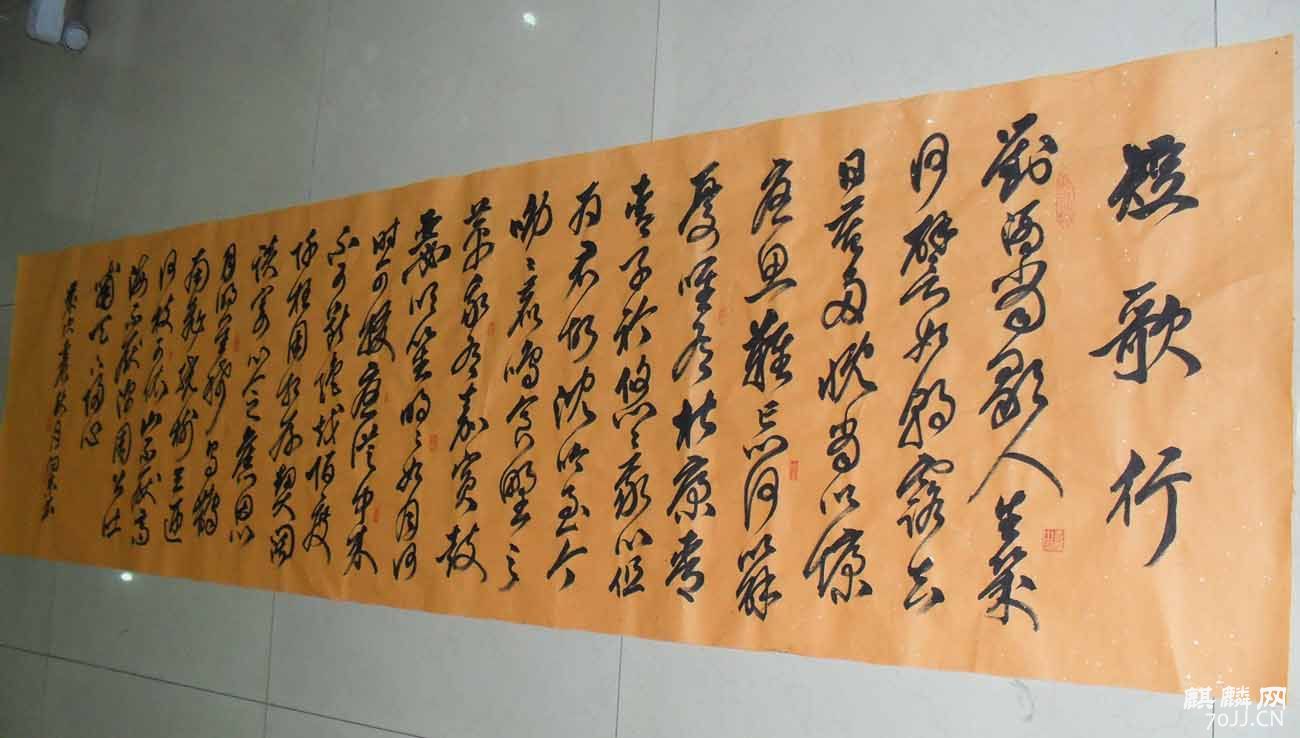 短歌行
對酒當歌人生幾
何譬如朝露去
日苦多慨當以慷
憂思難忘何以解
憂唯有杜康青
青子衿悠〻我心但
為君故沈吟至今
呦〻鹿鳴食野之
苹我有嘉賓鼓
瑟吹笙明〻如月何
時可掇憂從中來
不可斷越陌度
阡枉用相存契闊
談宴心念舊恩
月明星稀烏鵲
南飛繞樹三匝
何枝可依山不厭高
海不厭深周公吐
哺天下歸心
麒麟网
70JJ.CN